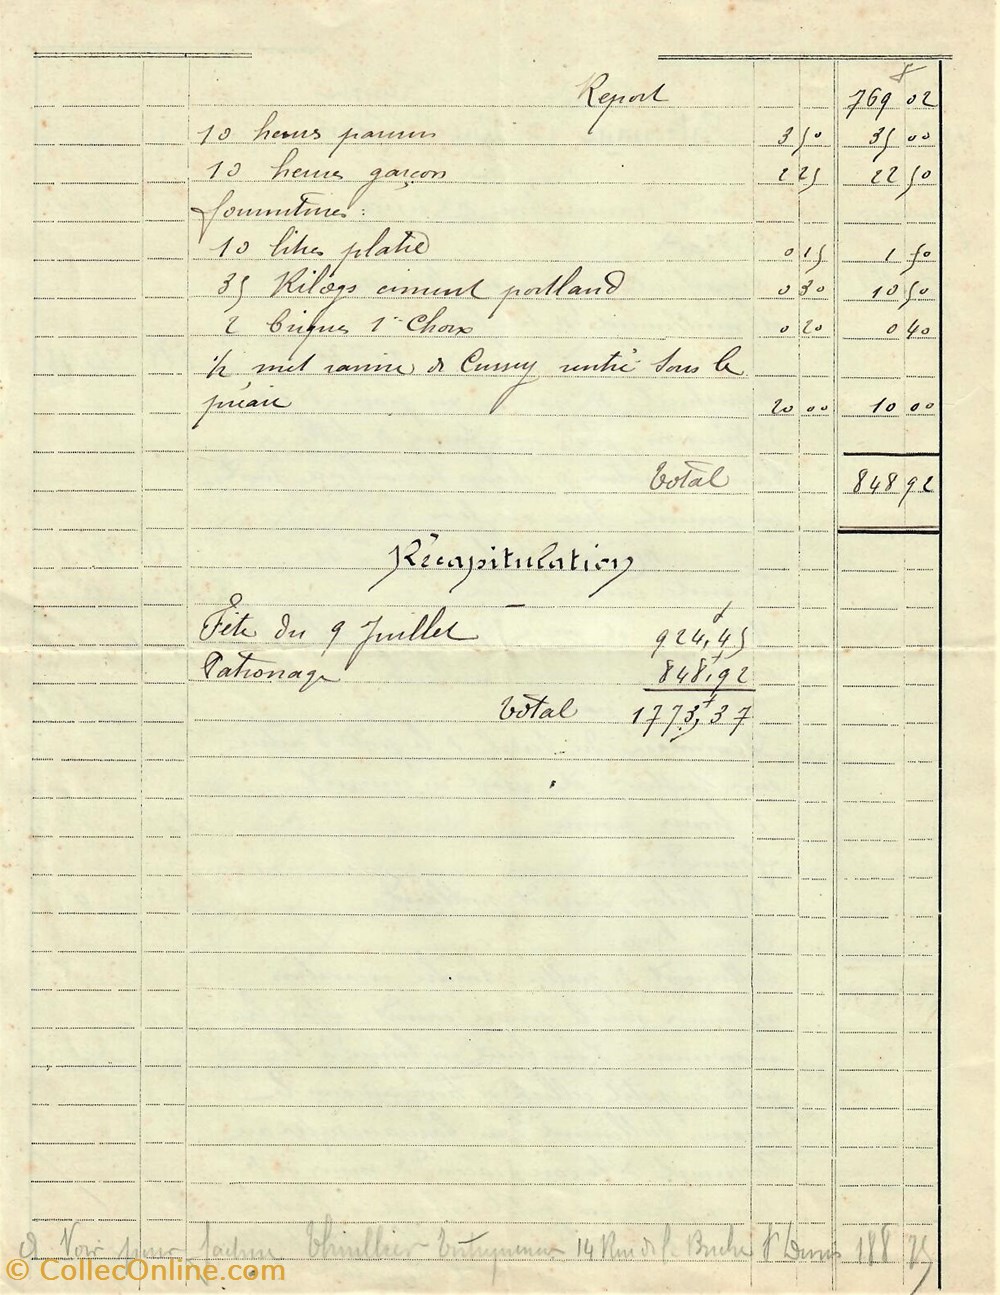 Report 769 02
10 heures paveur 3 50 35 00
10 heures garçon 2 25 22 50
fournitures:
10 litres platre 0 15 1 50
35 Kilogs ciment portland 0 30 10 50
2 briques 1er Choix 0 20 0 40
1/2 met ravine de Cussey rentré sous le
préau 20 00 10 00
Total 848 92
Récapitulation
Fête du 9 Juillet 924,45
Patronage 848,92
Total 1773,37
Voir pour facture Thuillier Entrepreneur 14 Rue de la Buche St Denis 188 75
© CollecOnline.com